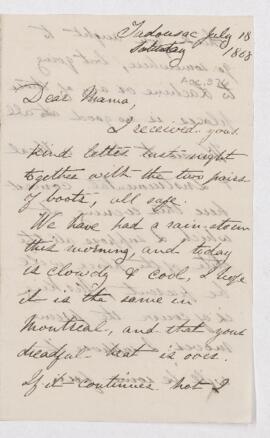 Tadousac July 18
Saturday 1868
Dear Mama,
I received your
kind letter last night
together with the two pairs
of boots, all safe.
We have had a rain storm
this morning, and today
is clowdy & cool, I hope
it is the same in
Montreal, and that your
dreadful heat is over.
If it continues hot I